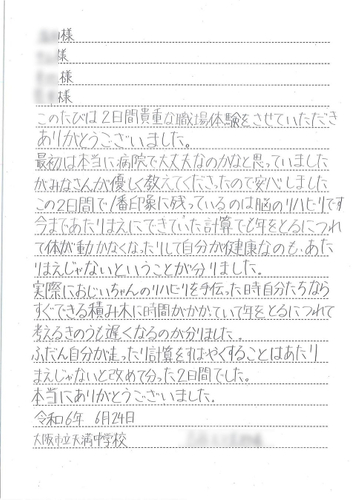 様
様
様
様
このたびは2日間貴重な職場体験をさせていただき
ありがとうございました。
最初は本当に病院で大丈夫なのかなと思っていました
がみなさんが優しく教えてくださったので安心しました
この2日間で1番印象に残っているのは脳のリハビリです
今まであたりまえにできていた計算でも年をとるにつれ
て体が動かなくなったりして自分が健康なのも、あた
りまえじゃないということが分りました。
実際におじいちゃんのリハビリを手伝った時自分たちなら
すぐできる積み木に時間がかかっていて年をとるにつれて
考えるきのうも遅くなるのか分りました。
ふだん自分が走ったり計算をすばやくすることはあたり
まえじゃないと改めて分った2日間でした。
本当にありがとうございました。
令和6年 6月24日
大阪市立天満中学校